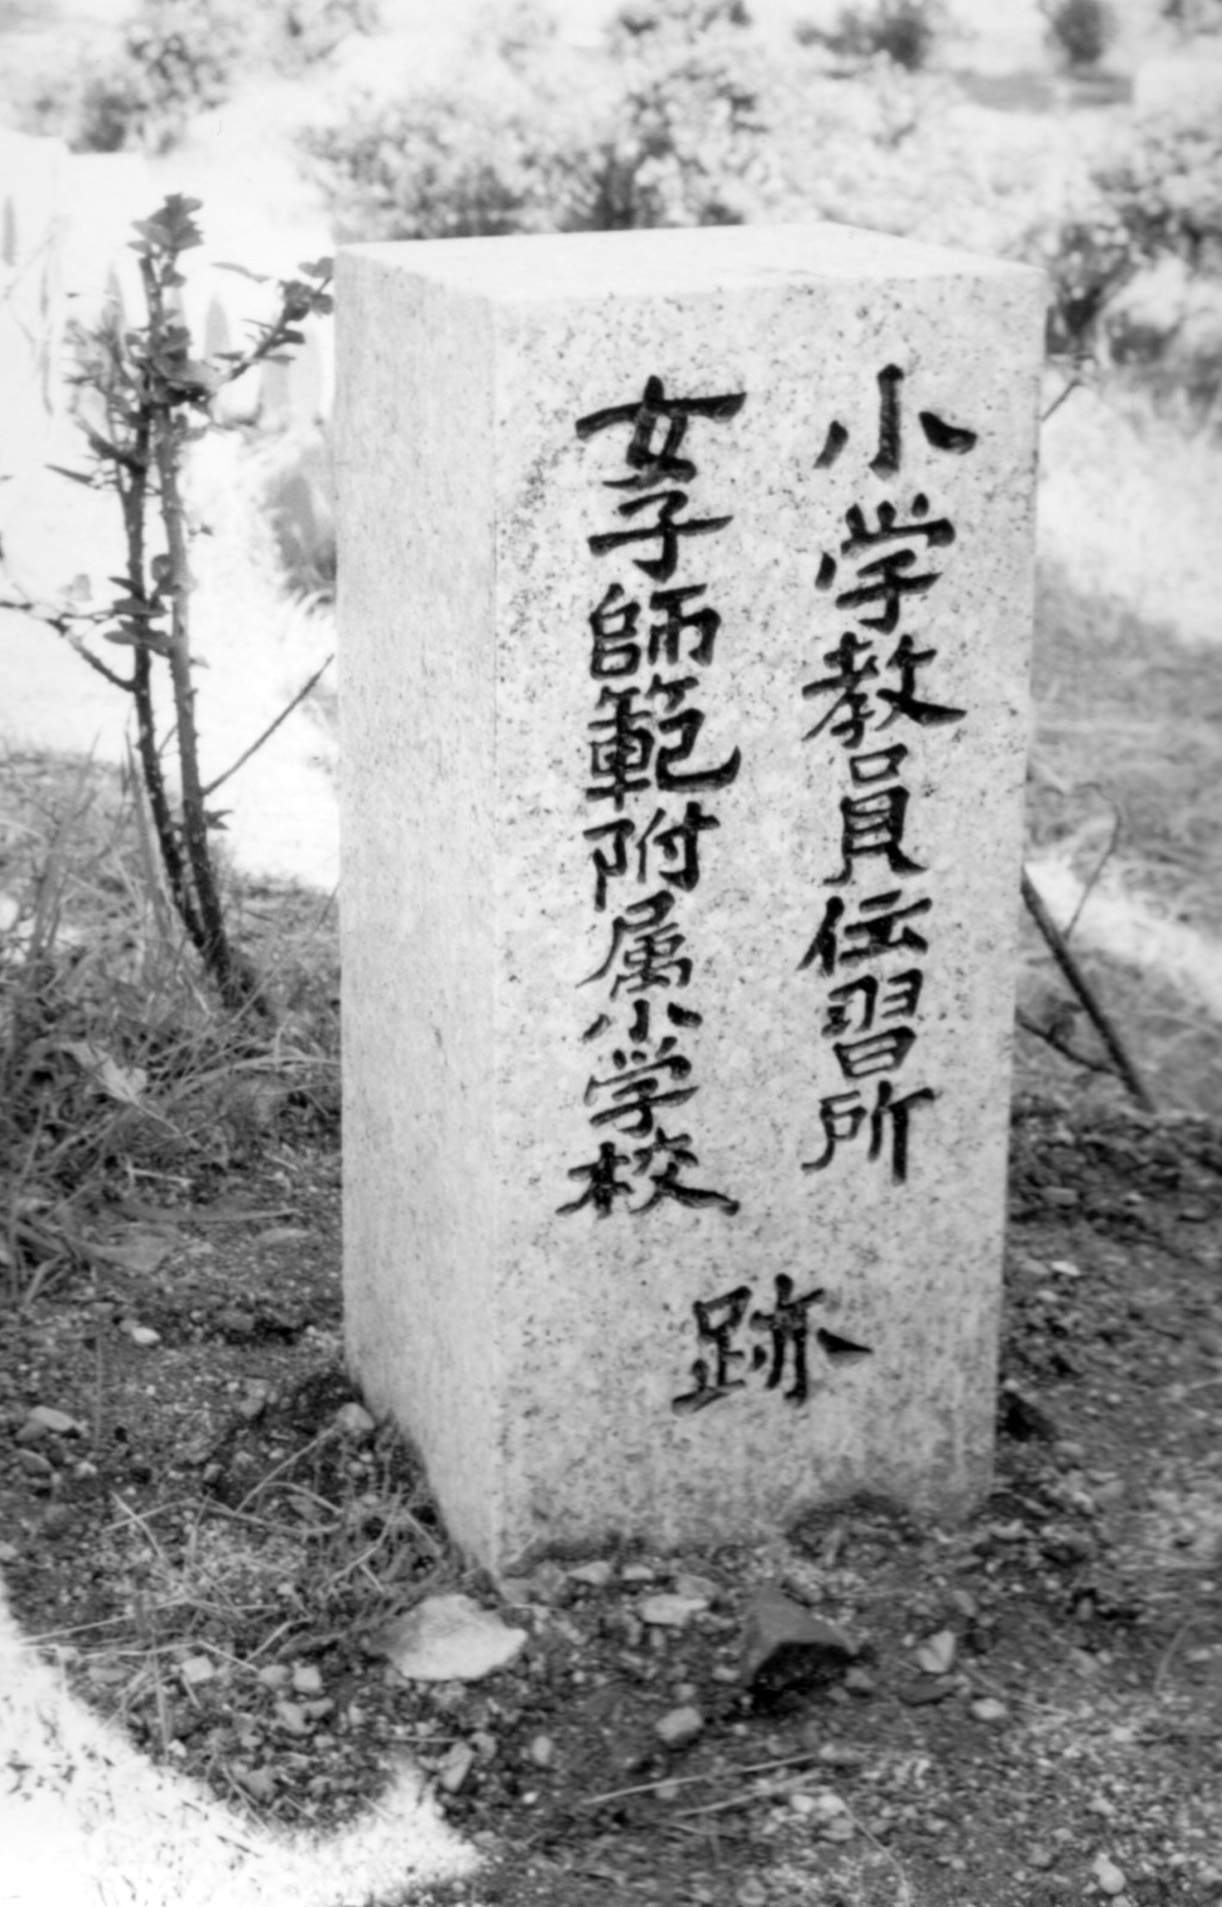 小学教員伝習所
女子師範附属小学校
跡